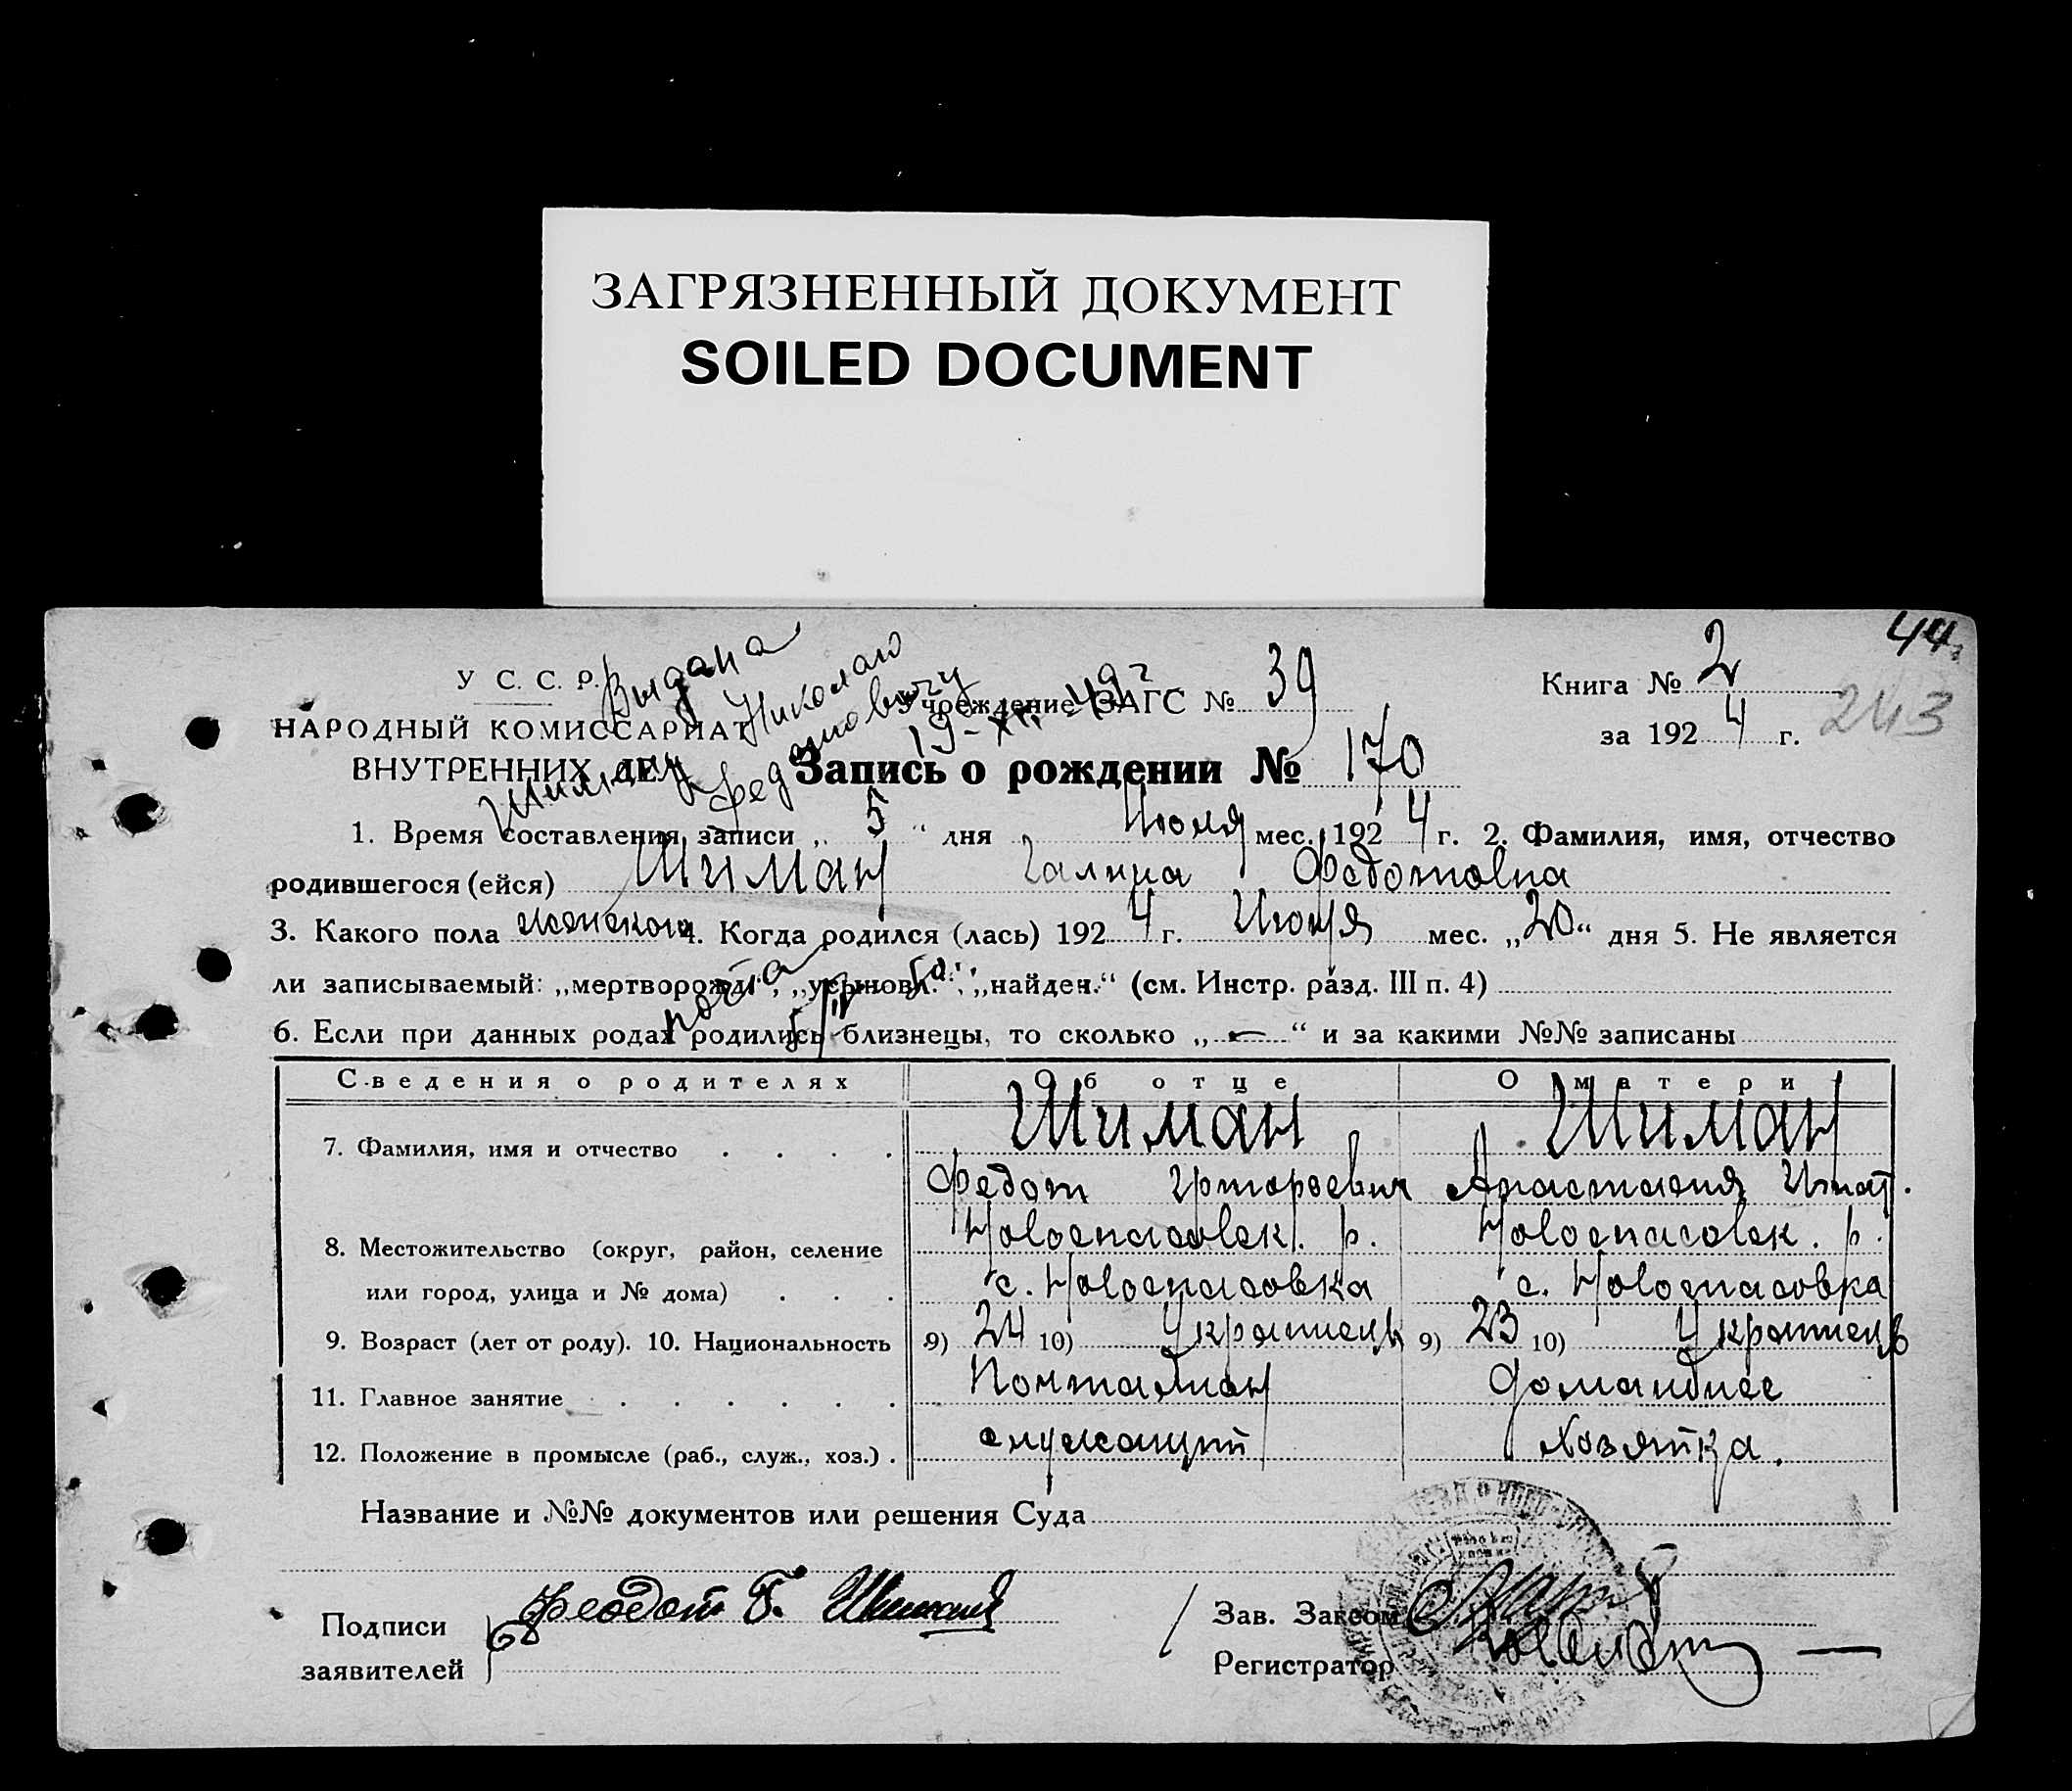 ЗАГРЯЗНЕННЫЙ ДОКУМЕНТ
SOILED DOCUMENT
44
У С. С. Р.
Выдана
Шиману Николаю
Федотовичу
19-XII-49 г
Учреждение ЗАГС № 39
Книга № 2
243
НАРОДНЫЙ КОМИССАРИАТ
за 1924 г.
ВНУТРЕННИХ ДЕЛ
Запись о рождении № 170
1. Время составления записи „ 5 “ дня Июля мес. 1924 г. 2. Фамилия, имя, отчество
родившегося (ейся) Шиман Галина Федотовна
3. Какого пола женского 4. Когда родился (лась) 1924 г. Июня мес. „20“ дня 5. Не является
ли записываемый: „мертворожд“, „усыновл.“, „найден.“ (см. Инстр. разд. III п. 4)
6. Если при данных родах родились близнецы, то сколько „—“ и за какими №№ записаны
Сведения о родителях Об отце О матери
7. Фамилия, имя и отчество . . . . Шиман Шиман
Федот Григорьевич Анастасия Игнат.
8. Местожительство (округ, район, селение Новоспасовск. р. Новоспасовск. р.
или город, улица и № дома) . . . с. Новоспасовка с. Новоспасовка
9. Возраст (лет от роду). 10. Национальность 9) 24 10) Украинець 9) 23 10) Украинець
11. Главное занятие . . . . . . Почтальон Домашнее
12. Положение в промысле (раб., служ., хоз.) . служащий Хозяйка.
Название и №№ документов или решения Суда
Подписи
заявителей
Феодот Г. Шиман
Зав. Загсом
Регистратор